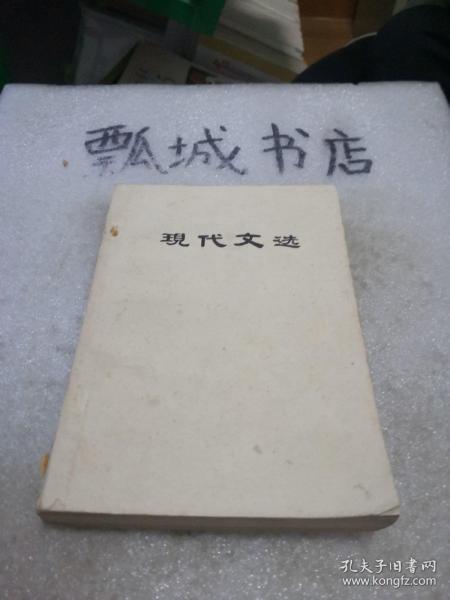 瓢城书店
現代文选
孔夫子旧书网
www.kongfz.com